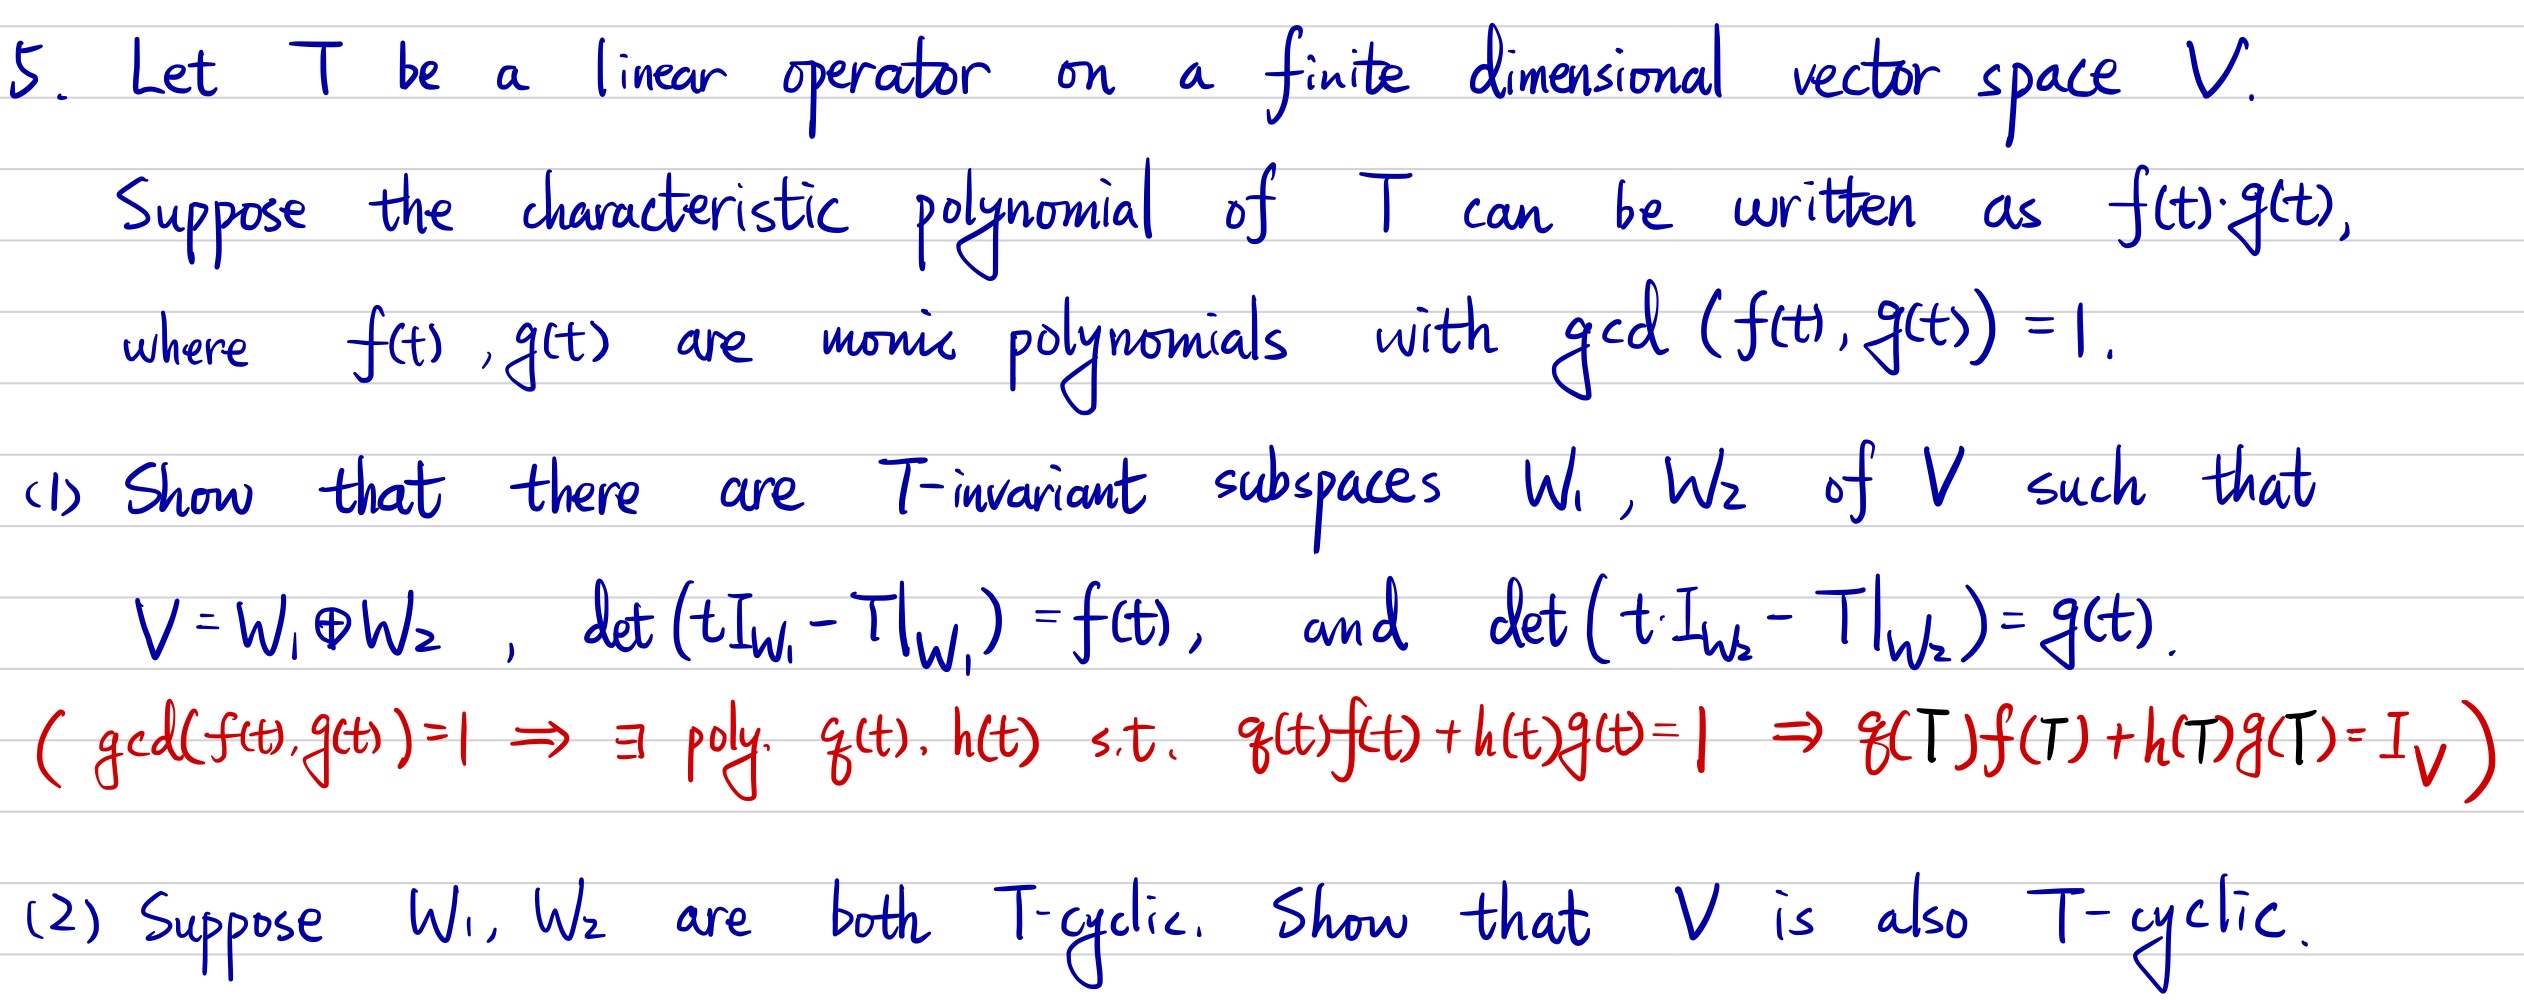 5. Let T be a linear operator on a finite dimensional vector space V.
Suppose the characteristic polynomial of T can be written as f(t)·g(t),
where f(t), g(t) are monic polynomials with gcd (f(t), g(t)) = 1.
(1) Show that there are T-invariant subspaces W₁, W₂ of V such that
V = W₁ ⊕ W₂, det(tI_{W₁} - T|_{W₁}) = f(t), and det(t·I_{W₂} - T|_{W₂}) = g(t).
(gcd(f(t), g(t)) = 1 ⇒ ∃ poly. q(t), h(t) s.t. q(t)f(t) + h(t)g(t) = 1 ⇒ q(T)f(T) + h(T)g(T) = I_V)
(2) Suppose W₁, W₂ are both T-cyclic. Show that V is also T-cyclic.